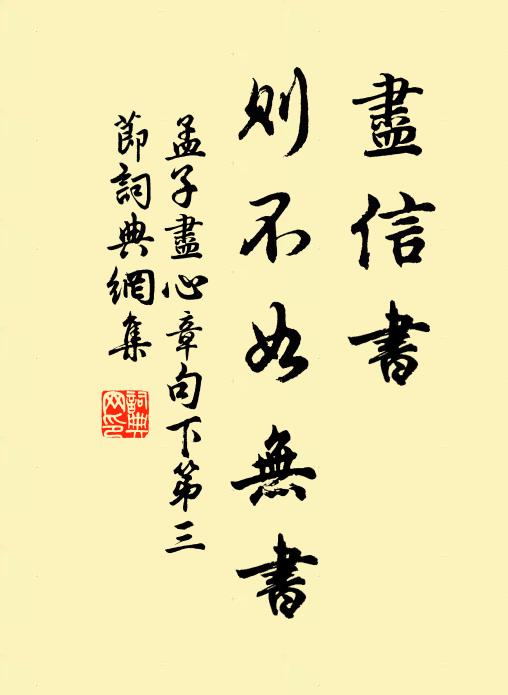 盡信書
則不如無書
孟子盡心章句下第三
節詞典網集
詞典
网印